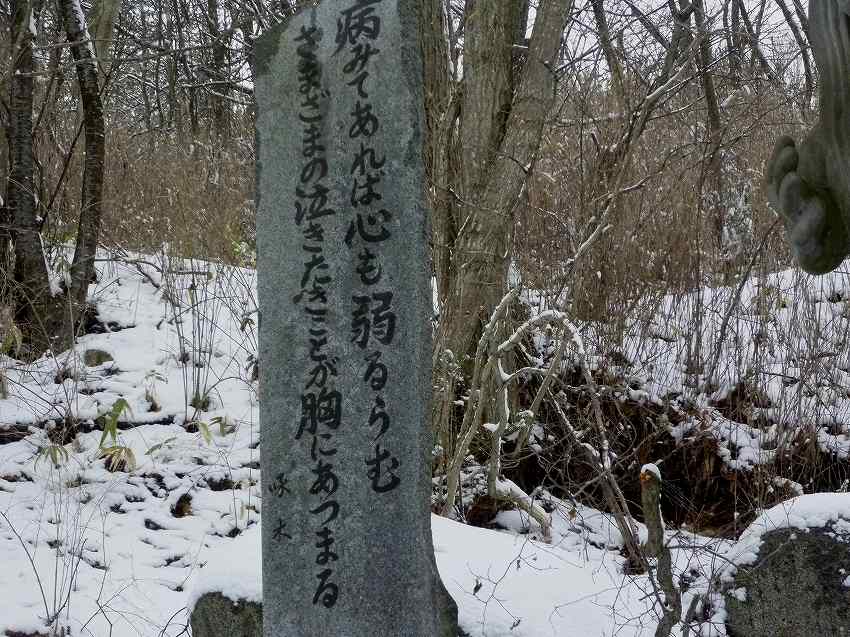 病みてあれば心も弱るらむ
さまざまの泣きたきことが胸にあつまる
啄木